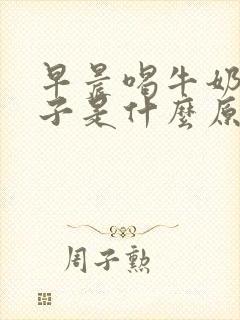 早晨喝牛奶
子是什麼原
周子勲